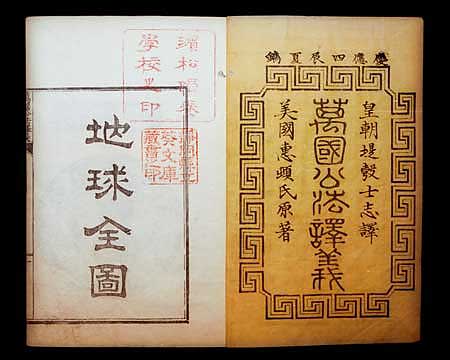 慶應四辰夏鐫
皇朝堤殼士志譯
萬國公法譯義
美國惠頓氏原著
地球全圖
濱松
學校之印
葵文庫
藏書印